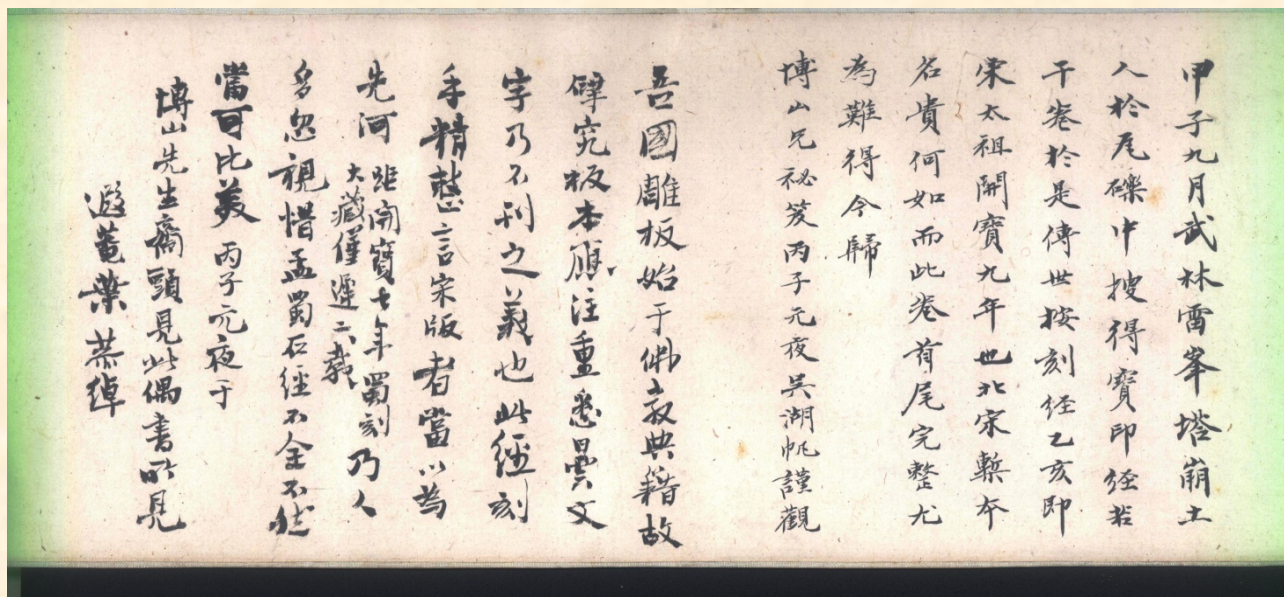 甲子九月武林雷峯塔崩土
人於瓦礫中搜得寶印經若
干卷於是傳世按刻經乙亥即
宋太祖開寶九年也北宋槧本
名貴何如而此卷首尾完整尤
為難得今歸
博山兄祕笈丙子元夜吳湖帆謹觀
吾國雕板始于佛教典籍故
擘究板本應注重悉曇文
字乃不刊之義也此經刻
手精整言宋版者當以為
先河距開寶七年蜀刻
大藏僅遲二載乃人
多忽視惜孟蜀石經不全不然
當可比美丙子元夜于
博山先生齋頭見此偶書所見
遐菴葉恭綽